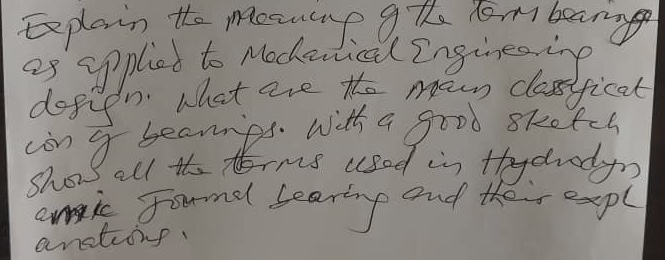 Explain the meaning of the term bearing
as applied to Mechanical Engineering
design. What are the main classificat
ion of bearings. With a good sketch
show all the terms used in Hydrodyn
amic Journal bearing and their expl
anations.